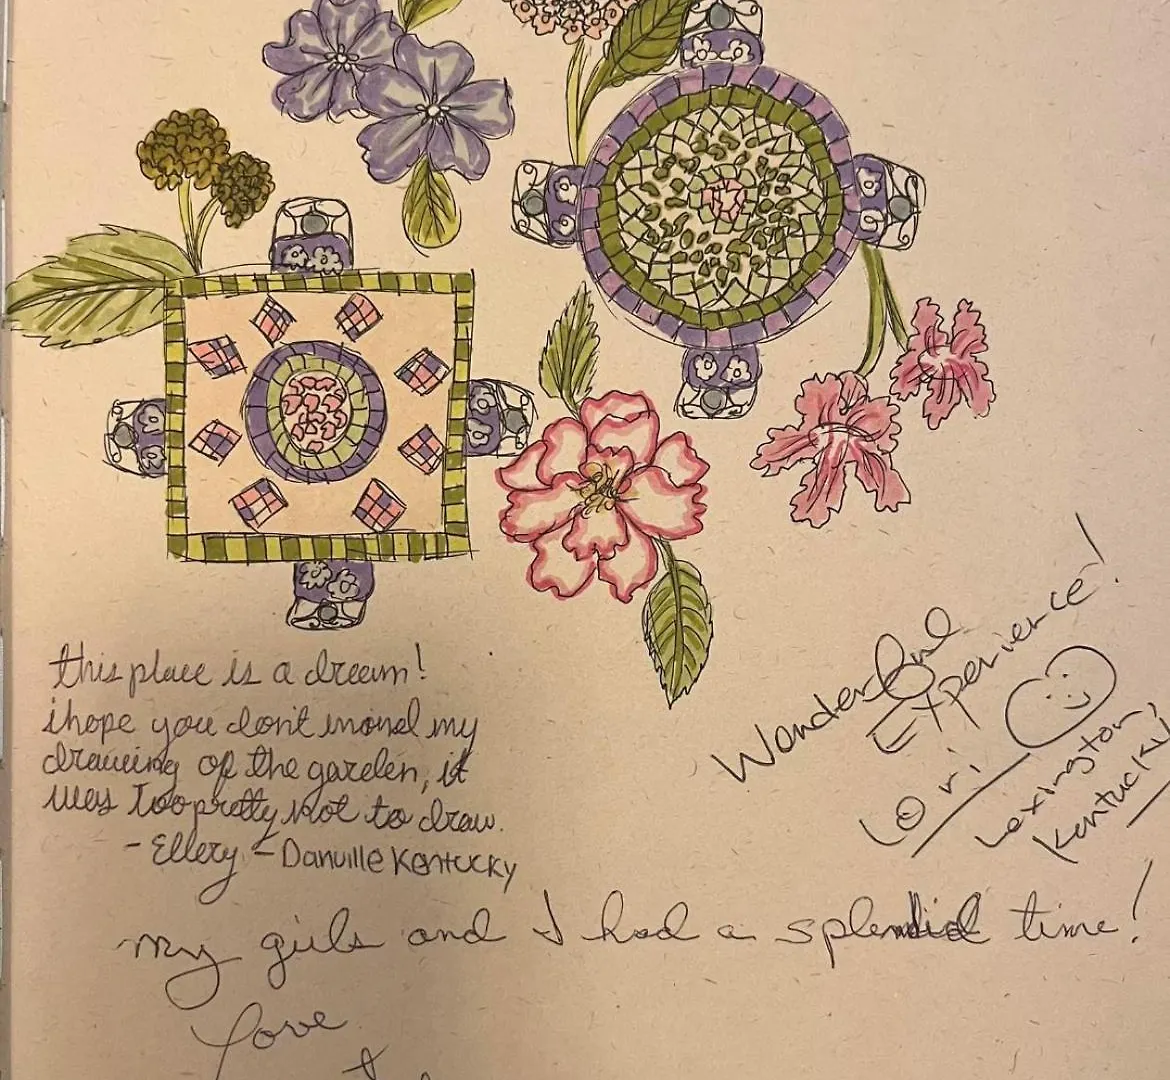 this place is a dream!
i hope you don't mind my
drawing of the garden, it
was too pretty not to draw.
- Ellery - Danville Kentucky
Wonderful
Experience!
Lori
Lexington,
Kentucky
my girls and I had a splendid time!
Love